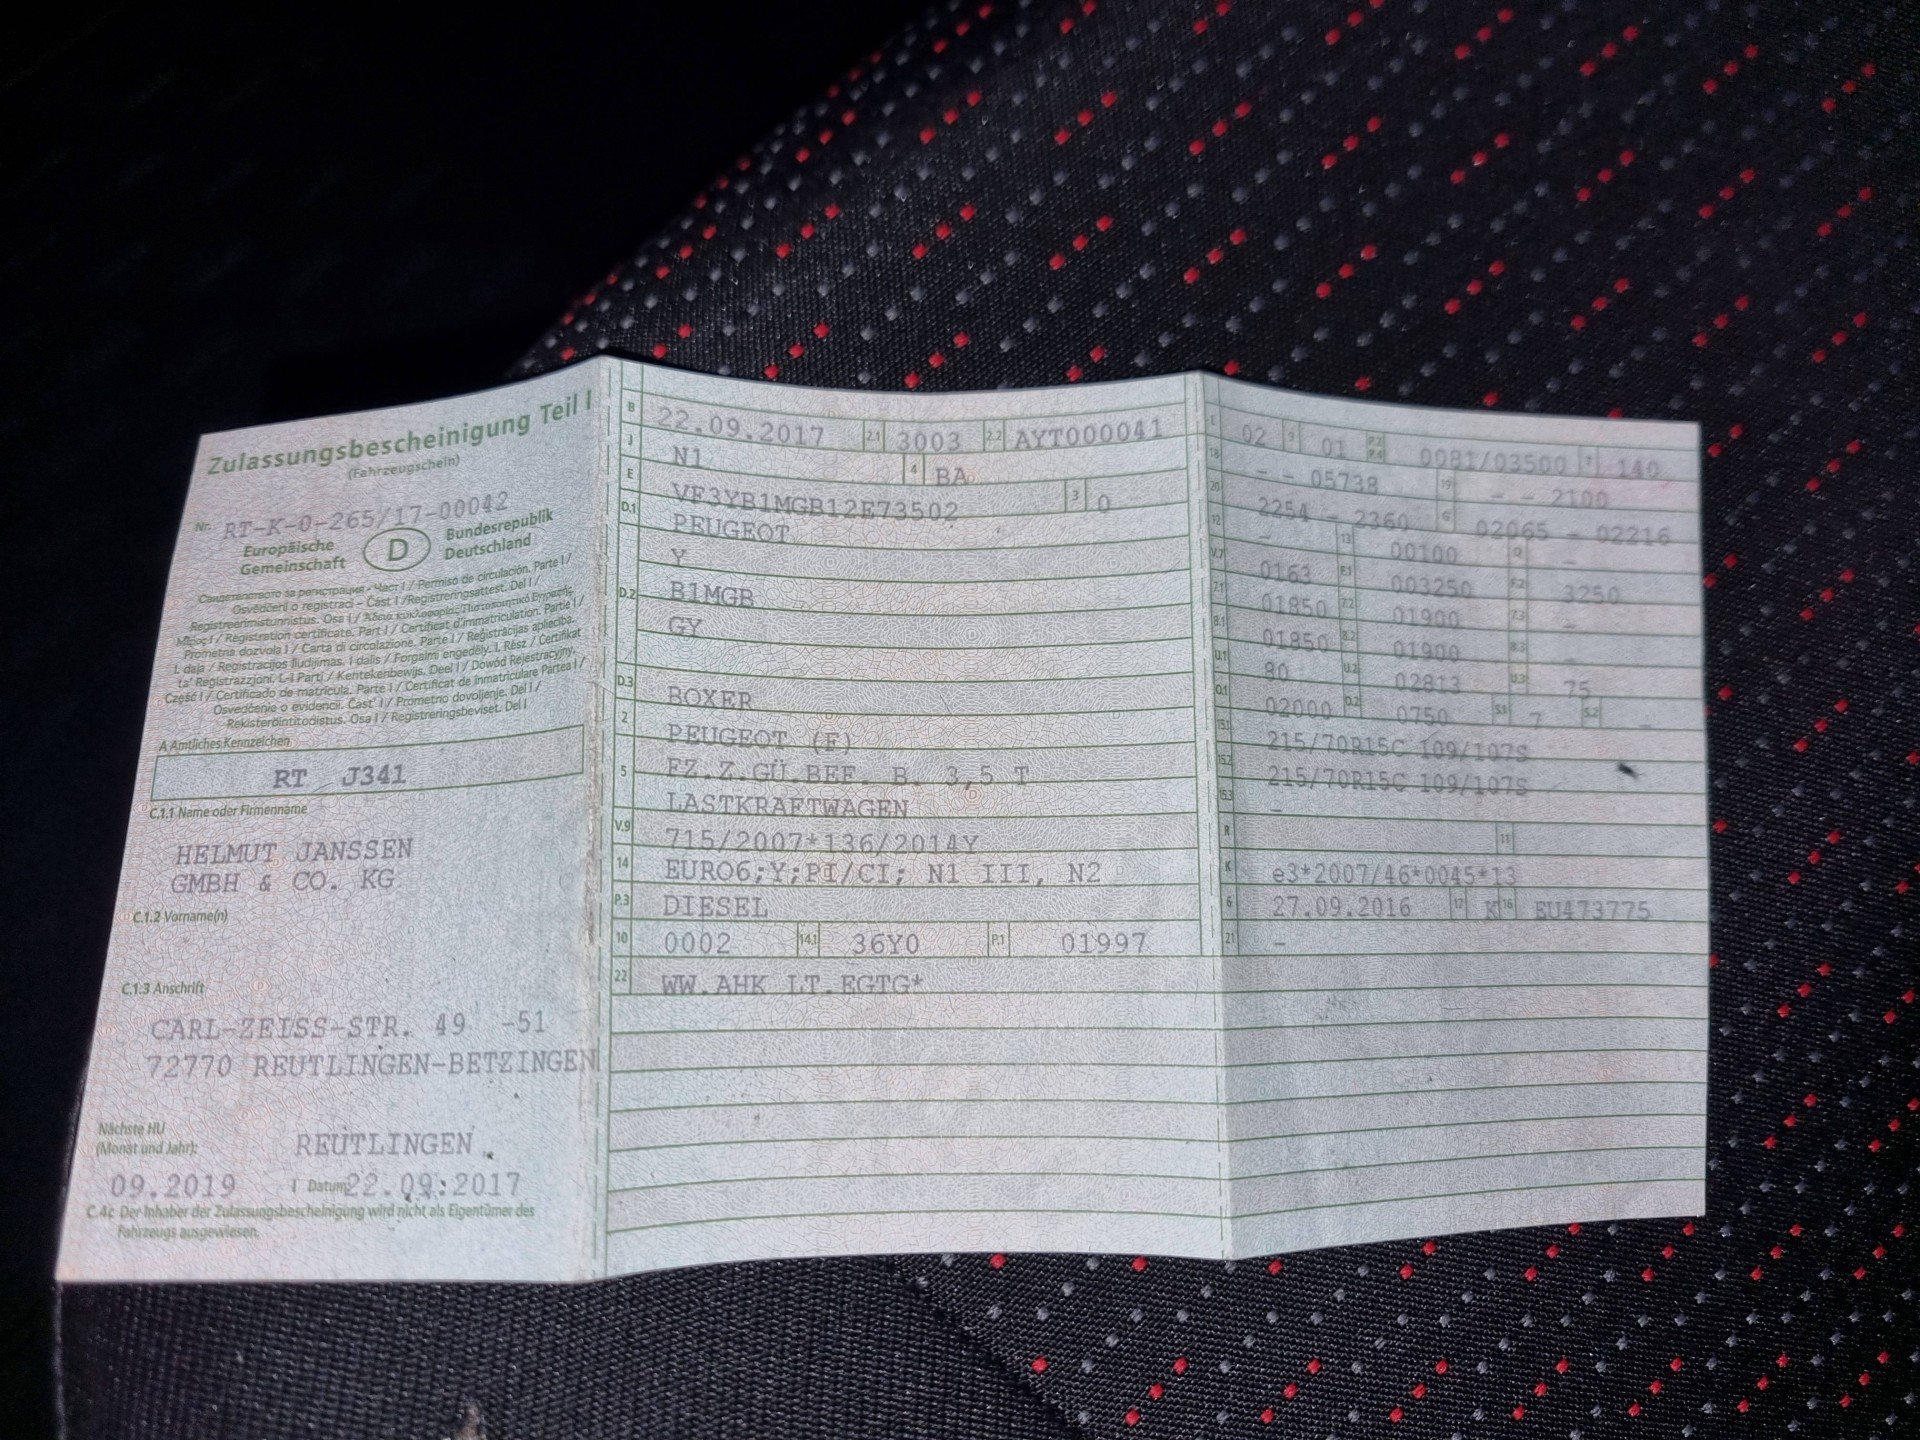 Zulassungsbescheinigung Teil I
(Fahrzeugschein)
Nr. RT-K-0-265/17-00042
Europäische Gemeinschaft
D
Bundesrepublik Deutschland
Свидетелството за регистрация - Част I / Permiso de circulación. Parte I /
Osvědčení o registraci - Část I / Registreringsattest. Del I /
Registreerimistunnistus. Osa I /
Μέρος I / Registration certificate. Part I / Certificat d'immatriculation. Partie I /
Prometna dozvola I / Carta di circolazione. Parte I / Reģistrācijas apliecība.
I. daļa / Registracijos liudijimas. I dalis / Forgalmi engedély. I. Rész / Ċertifikat
ta' Reġistrazzjoni. L-I Parti / Kentekenbewijs. Deel I / Dowód Rejestracyjny.
Część I / Certificado de matrícula. Parte I / Certificat de înmatriculare Partea I /
Osvedčenie o evidencii. Časť I / Prometno dovoljenje. Del I /
Rekisteröintitodistus. Osa I / Registreringsbeviset. Del I
A Amtliches Kennzeichen
RT J341
C.1.1 Name oder Firmenname
HELMUT JANSSEN
GMBH & CO. KG
C.1.2 Vorname(n)
C.1.3 Anschrift
CARL-ZEISS-STR. 49 -51
72770 REUTLINGEN-BETZINGEN
Nächste HU
(Monat und Jahr):
REUTLINGEN
09.2019 I Datum 22.09.2017
C.4c Der Inhaber der Zulassungsbescheinigung wird nicht als Eigentümer des
Fahrzeugs ausgewiesen.
B 22.09.2017 2.1 3003 2.2 AYT000041
J N1 4 BA
E VF3YB1MGB12E73502 3 0
D.1 PEUGEOT
Y
D.2 B1MGB
GY
D.3 BOXER
2 PEUGEOT (F)
5 FZ.Z.GÜ.BEF. B. 3,5 T
LASTKRAFTWAGEN
V.9 715/2007*136/2014Y
14 EURO6;Y;PI/CI; N1 III, N2
P.3 DIESEL
10 0002 14.1 36Y0 P.1 01997
22 WW.AHK LT.EGTG*
L 02 9 01 P.2 P.4 0081/03500 T 140
18 - - 05738 19 - - 2100
20 2254 - 2360 G 02065 - 02216
12 - 13 00100 Q -
V.7 0163 F.1 003250 F.2 3250
7.1 01850 7.2 01900 7.3 -
8.1 01850 8.2 01900 8.3 -
U.1 80 U.2 02813 U.3 75
O.1 02000 O.2 0750 S.1 7 S.2 -
15.1 215/70R15C 109/107S
15.2 215/70R15C 109/107S
15.3 -
R 11
K e3*2007/46*0045*13
6 27.09.2016 17 K 16 EU473775
21 -